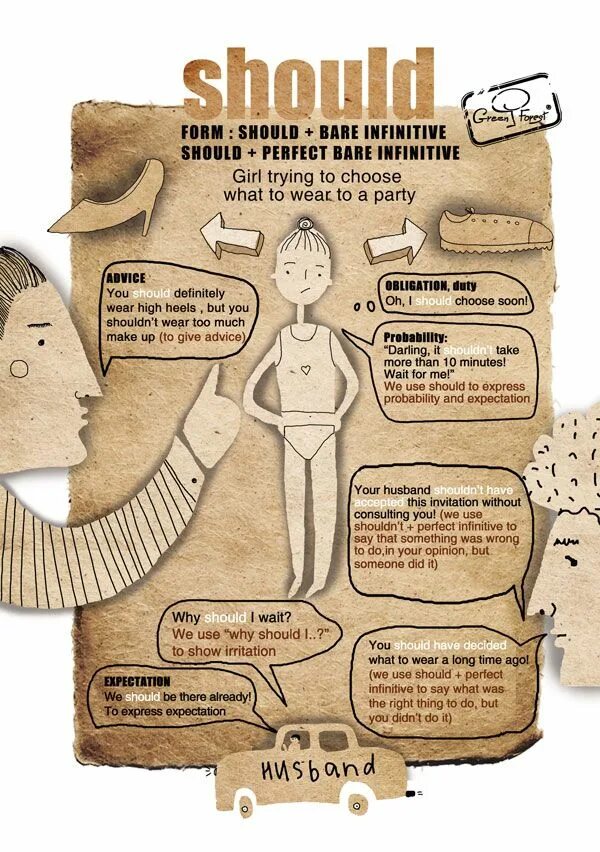 should
Green Forest
FORM : SHOULD + BARE INFINITIVE
SHOULD + PERFECT BARE INFINITIVE
Girl trying to choose
what to wear to a party
ADVICE
You should definitely
wear high heels , but you
shouldn't wear too much
make up (to give advice)
OBLIGATION, duty
Oh, I should choose soon!
Probability:
“Darling, it shouldn't take
more than 10 minutes!
Wait for me!”
We use should to express
probability and expectation
Your husband shouldn't have
accepted this invitation without
consulting you! (we use
shouldn't + perfect infinitive to
say that something was wrong
to do,in your opinion, but
someone did it)
Why should I wait?
We use “why should I..?”
to show irritation
You should have decided
what to wear a long time ago!
(we use should + perfect
infinitive to say what was
the right thing to do, but
you didn't do it)
EXPECTATION
We should be there already!
To express expectation
HUSband